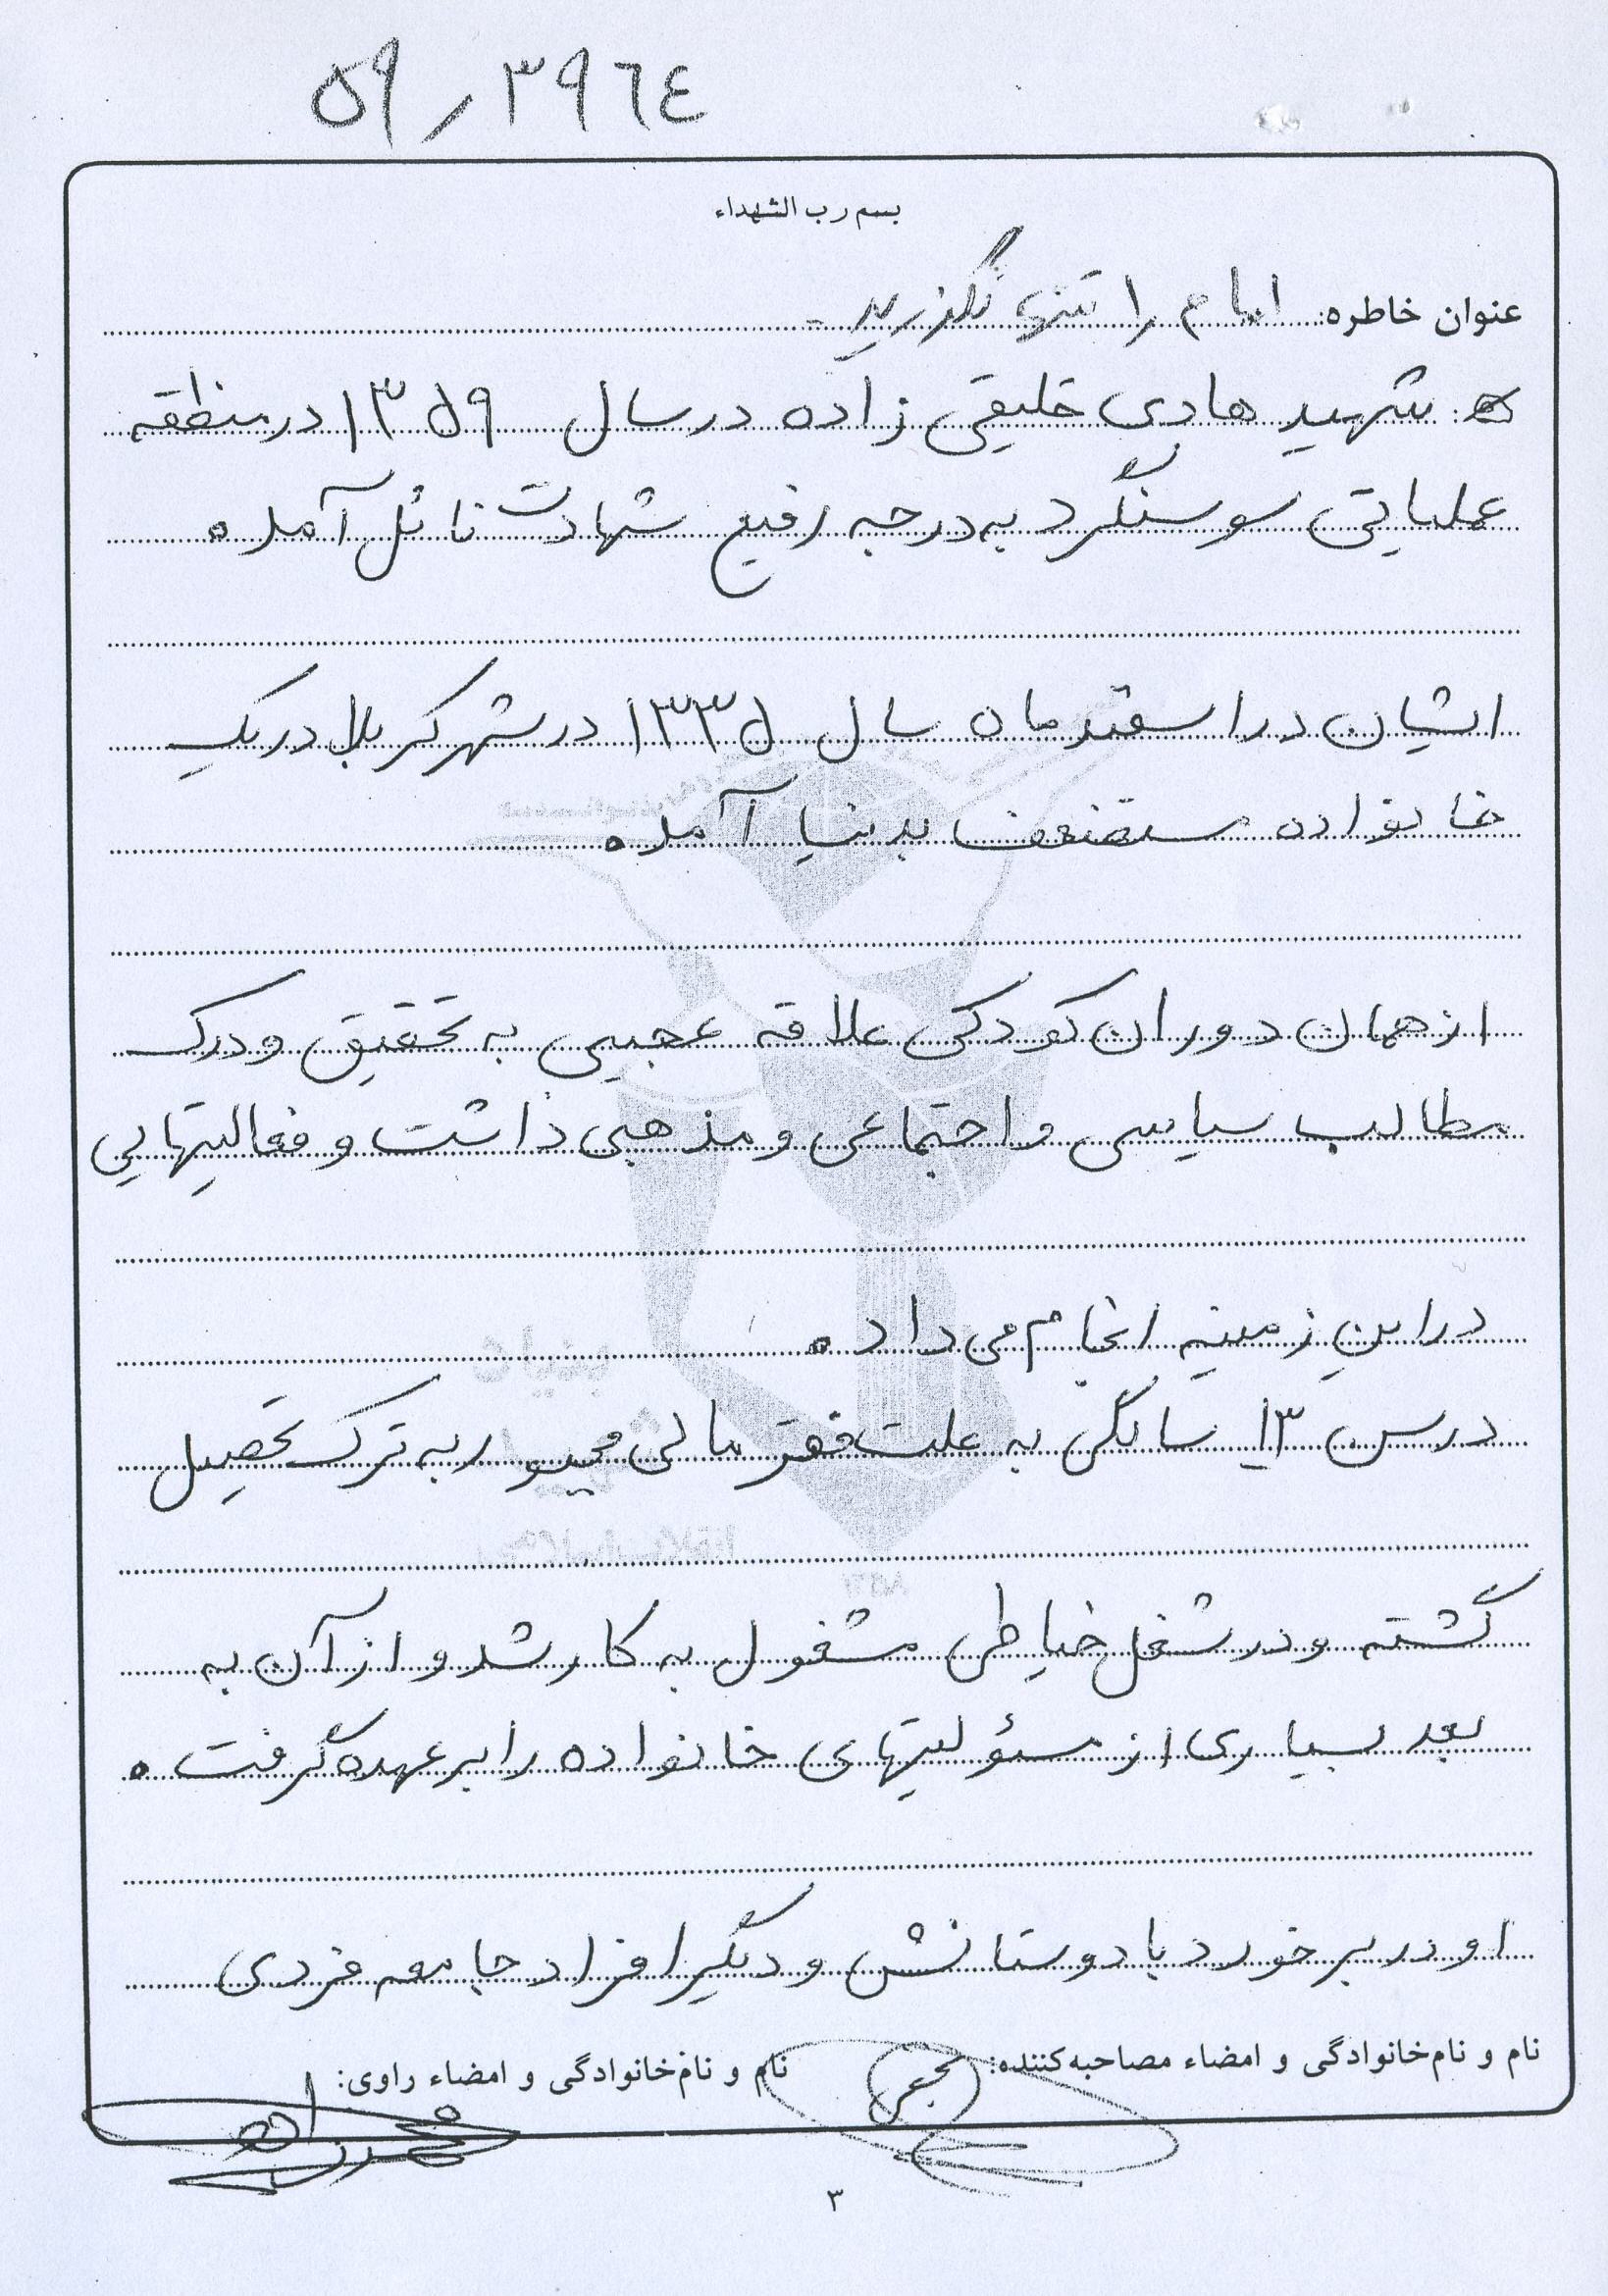 ۵۹/۳۹۶۴
بسم رب الشهداء
عنوان خاطره: امام را تنها نگذارید -
شهید هادی خلیقی زاده در سال ۱۳۵۹ در منطقه
عملیاتی سوسنگرد به درجه رفیع شهادت نائل آمده
ایشان در اسفند ماه سال ۱۳۳۵ در شهر کربلا در یک
خانواده مستضعف بدنیا آمده
از همان دوران کودکی علاقه عجیبی به تحقیق و درک
مطالب سیاسی و اجتماعی و مذهبی داشت و فعالیتهایی
در این زمینه انجام می داد.
در سن ۱۳ سالگی به علت فقر مالی مجبور به ترک تحصیل
گشته و در شغل خیاطی مشغول به کار شد و از آن به
بعد بسیاری از مسئولیتهای خانواده را بر عهده گرفت.
او در برخورد با دوستانش و دیگر افراد جامعه فردی
نام و نام‌خانوادگی و امضاء مصاحبه‌کننده: نام و نام‌خانوادگی و امضاء راوی:
۳